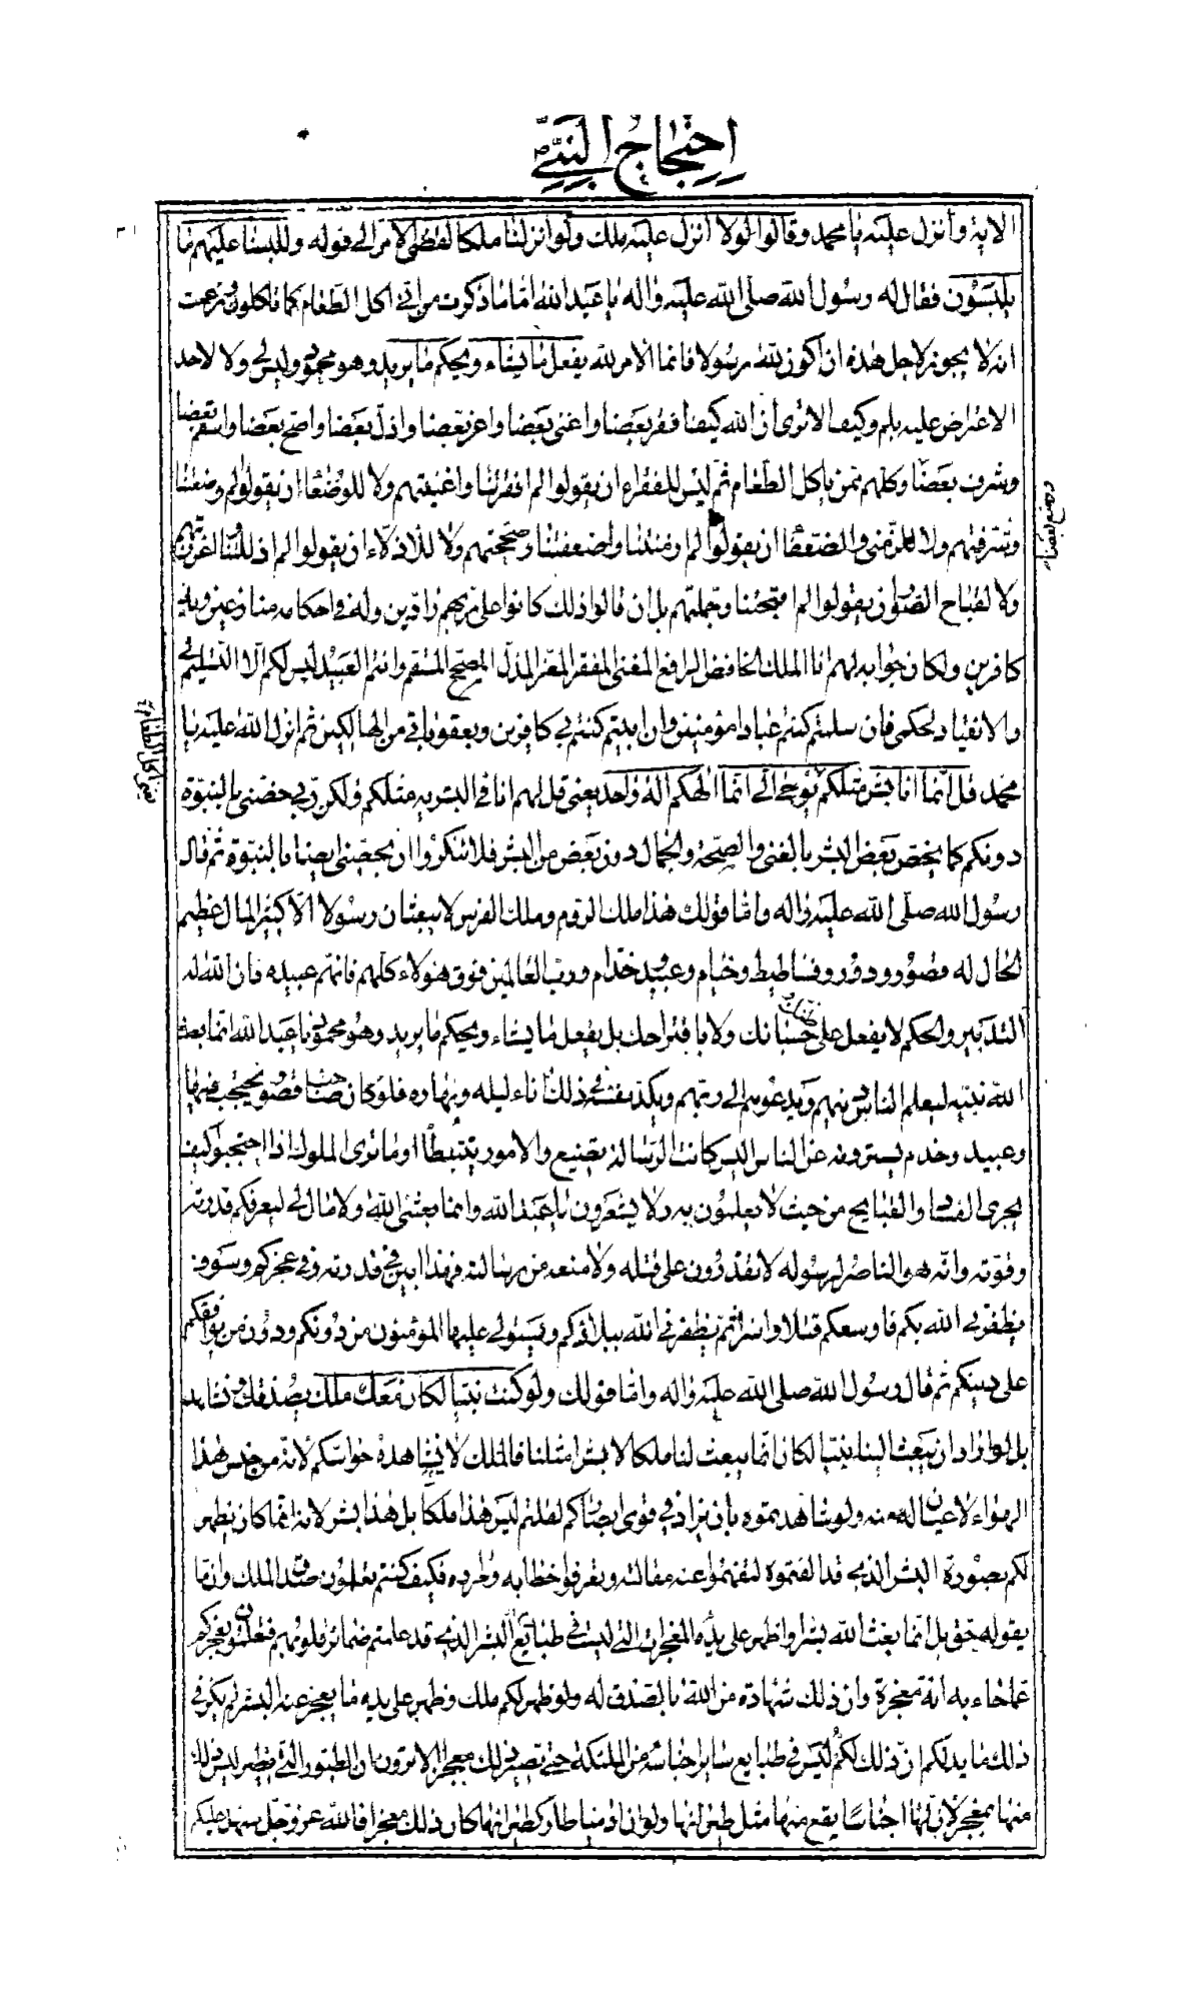 احتجاج النبي ص
الاية وانزل عليه يا محمد وقالوا لولا انزل عليه ملك ولو انزلنا ملكا لقضى الامر الى قوله وللبسنا عليهم ما
يلبسون فقال له رسول الله صلى الله عليه واله يا عبد الله اما ما ذكرت من اني اكل الطعام كما تاكلون وزعمت
انه لا يجوز لاجل هذه ان اكون لله رسولا فانما الامر لله يفعل ما يشاء ويحكم ما يريد وهو محمود وليس لي ولا لاحد
الاعتراض عليه بلم وكيف الا ترى ان الله كيف افقر بعضا واغنى بعضا واعز بعضا واذل بعضا واصح بعضا واسقم بعضا
وشرف بعضا وكلهم ممن ياكل الطعام ثم ليس للفقراء ان يقولوا لم افقرتنا واغنيتهم ولا للوضعاء ان يقولوا لم وضعتنا
وشرفتهم ولا للزمنى والضعفاء ان يقولوا لم ازمنتنا واضعفتنا وصححتهم ولا للاذلاء ان يقولوا لم اذللتنا واعززتهم
ولا لقباح الصور ان يقولوا لم اقبحتنا وجملتهم بل ان قالوا ذلك كانوا على ربهم رادين وله في احكامه منازعين وبه
كافرين ولكان جوابه لهم انا الملك الخافض الرافع المغني المفقر المعز المذل المصحح المسقم وانتم العبيد ليس لكم الا التسليم لي
والانقياد لحكمي فان سلمتم كنتم عبادا مؤمنين وان ابيتم كنتم بي كافرين وبعقوباتي من الهالكين ثم انزل الله عليه يا
محمد قل انما انا بشر مثلكم يوحى الي انما الهكم اله واحد يعني قل لهم انا في البشرية مثلكم ولكن ربي خصني بالنبوة
دونكم كما يخص بعض البشر بالغنى والصحة والجمال دون بعض من البشر فلا تنكروا ان يخصني ايضا بالنبوة ثم قال
رسول الله صلى الله عليه واله واما قولك هذا ملك الروم وملك الفرس لا يبعثان رسولا الا كثير المال عظيم
الحال له قصور ودور وفساطيط وخيام وعبيد وخدام ورب العالمين فوق هؤلاء كلهم فانهم عبيده فان الله له
التدبير والحكم لا يفعل على حسبانك ولا باقتراحك بل يفعل ما يشاء ويحكم ما يريد وهو محمود يا عبد الله انما بعث
الله نبيه ليعلم الناس دينهم ويدعوهم الى ربهم ويكد نفسه في ذلك اناء ليله ونهاره فلو كان صاحب قصور يحتجب فيها
وعبيد وخدم يسترونه عن الناس اليس كانت الرسالة تضيع والامور تتبطأ اوما ترى الملوك اذا احتجبوا كيف
يجري الفساد والقبايح من حيث لا يعلمون به ولا يشعرون يا عبد الله وانما بعثني الله ولا مال لي ليعرفكم قدرته
وقوته وانه هو الناصر لرسوله لا تقدرون على قتله ولا منعه من رسالته فهذا ابين في قدرته وفي عجزكم وسوف
يظفرني الله بكم فاوسعكم قتلا واسرا ثم يظفرني الله ببلادكم ويستولي عليها المؤمنون من دونكم ودون من يوافقكم
على دينكم ثم قال رسول الله صلى الله عليه واله واما قولك ولو كنت نبيا لكان معك ملك يصدقك ونشاهده
بل لو اراد ان يبعث الينا نبيا لكان انما يبعث لنا ملكا لا بشرا مثلنا فالملك لا تشاهده حواسكم لانه من جنس هذا
الهواء لا عيان له منه ولو شاهدتموه بان يزاد في قوى ابصاركم لقلتم ليس هذا ملكا بل هذا بشر لانه انما كان يظهر
لكم بصورة البشر الذي قد الفتموه لتفهموا عنه مقالته وتعرفوا خطابه ومراده فكيف كنتم تعلمون صدق الملك وان ما
يقوله حق بل انما بعث الله بشرا واظهر على يده المعجزات التي ليست في طبايع البشر الذين قد علمتم ضمائر قلوبهم فتعلمون بعجزكم
عما جاء به انه معجزة وان ذلك شهادة من الله بالصدق له ولو ظهر لكم ملك وظهر على يده ما يعجز عنه البشر لم يكن في
ذلك ما يدلكم ان ذلك ليس في طبايع ساير اجناسه من الملئكة حتى يصير ذلك معجزا الا ترون ان الطيور التي تطير ليس ذلك
منها بمعجز لان لها اجناسا يقع منها مثل طيرانها ولو ان ادميا طار كطيرانها كان ذلك معجزا فالله عز وجل سهل عليكم